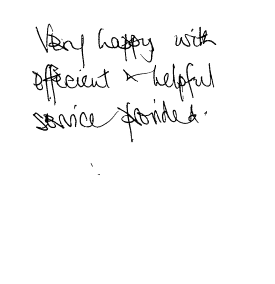 Very happy with
efficient & helpful
service provided.